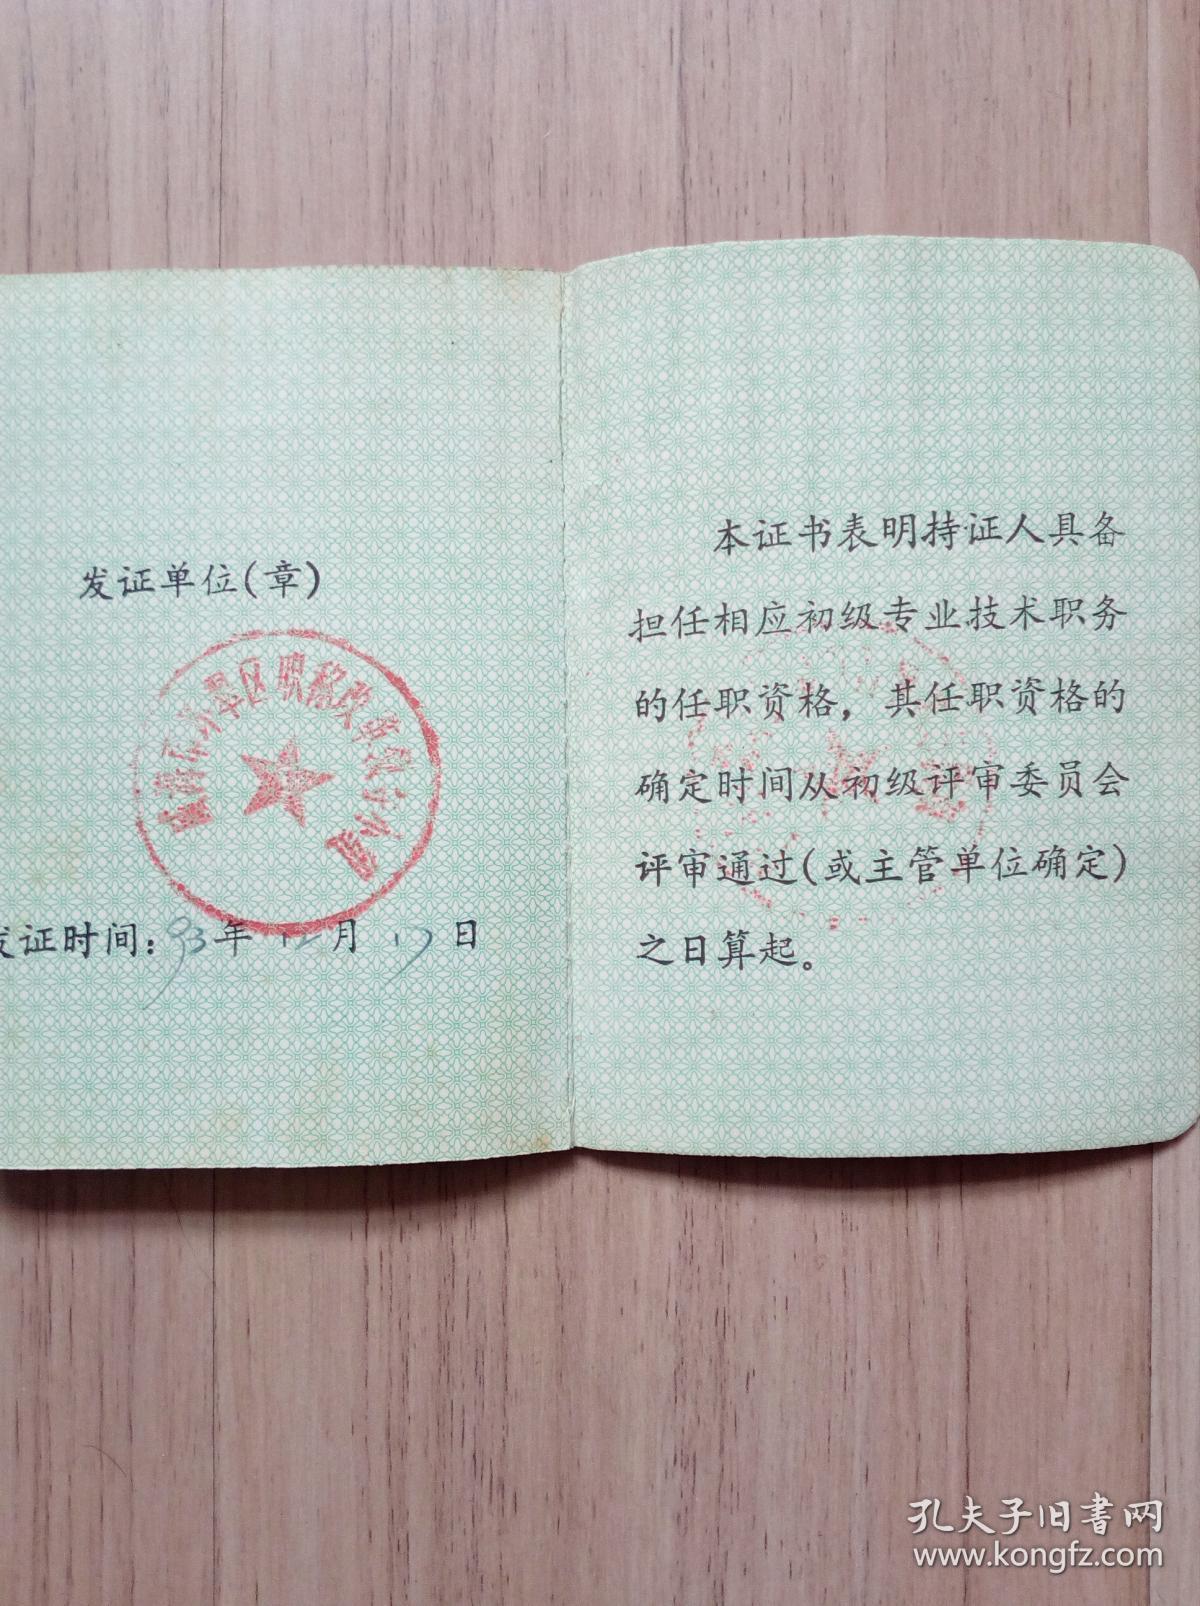 发证单位(章)
区职称改革
发证时间：93年12月17日
本证书表明持证人具备
担任相应初级专业技术职务
的任职资格，其任职资格的
确定时间从初级评审委员会
评审通过(或主管单位确定)
之日算起。
孔夫子旧书网
www.kongfz.com